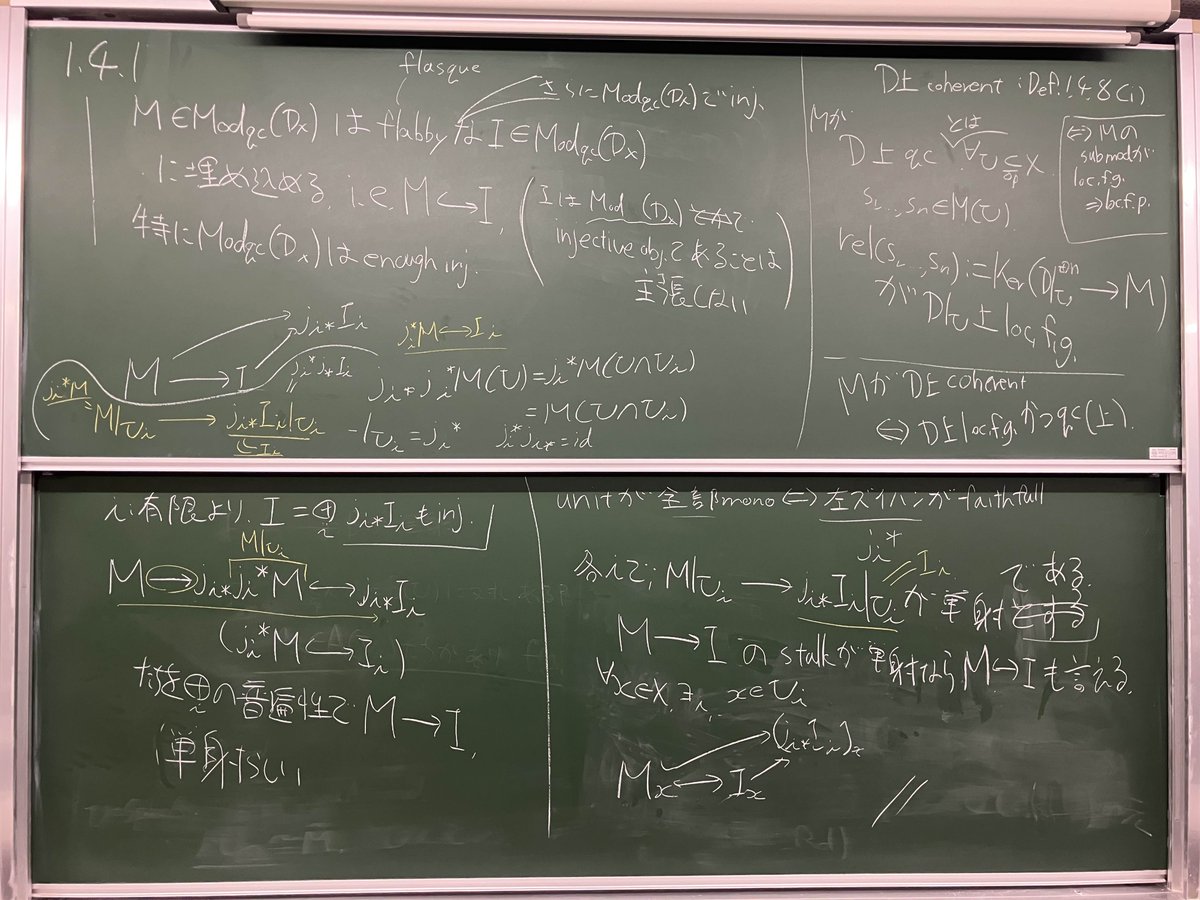 1.4.1
flasque
さらにModqc(Dx)でinj.
M∈Modqc(Dx) は flabby な I∈Modqc(Dx)
に埋め込める, i.e. M↪I,
特にModqc(Dx)は enough inj.
(Iは Mod (Dx)
injective obj.であることは
主張しない)
j_i*I_i
M → I
j_i^*j_i*I_i
j_i^*M
=M|U_i → j_i*I_i|U_i
=I_i
j_i^*M↪I_i
j_i*j_i^*M(U)=j_i^*M(U∩U_i)
=M(U∩U_i)
-|U_i=j_i^* j_i^*j_i*=id
D上 coherent : Def. 1.4.8(i)
Mが
D上 qc とは ∀U⊆X
op
s1,...,sn∈M(U)
rel(s1,...,sn):=Ker(D|U^⊕n→M)
がD|U上 loc.f.g.
⇔Mの
submodが
loc.f.g.
⇒loc.f.p.
MがD上 coherent
⇔ D上loc.f.g. かつqc(上).
i:有限より, I=⊕_i j_i*I_iもinj.
M|U_i
M→j_i*j_i^*M↪j_i*I_i
(j_i^*M↪I_i)
⊕_iの普遍性で M→I,
単射らしい
unitが 全部mono⇔左ズイハンがfaithfull
j_i^*
I_i
各iで, M|U_i → j_i*I_i|U_iが単射である
とする
M→I のstalkが単射ならM↪Iも言える.
∀x∈X, ∃i, x∈U_i
(j_i*I_i)x
Mx↪Ix
//